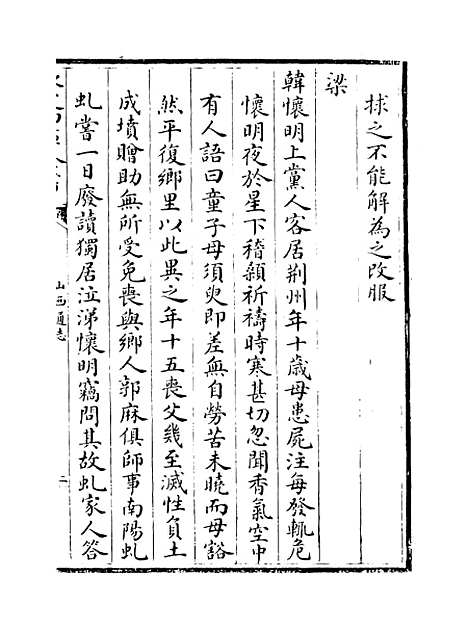 捄之不能解為之改服
梁
韓懷明上黨人客居荆州年十歳母患屍注每發輒危
懷明夜於星下稽顙祈禱時寒甚切忽聞香氣空中
有人語曰童子母須臾即差無自勞苦未曉而母豁
然平復鄉里以此異之年十五喪父幾至滅性負土
成墳贈助無所受免喪與鄉人郭麻俱師事南陽虬
虬嘗一日廢讀獨居泣涕懷明竊問其故虬家人答
山西通志
二